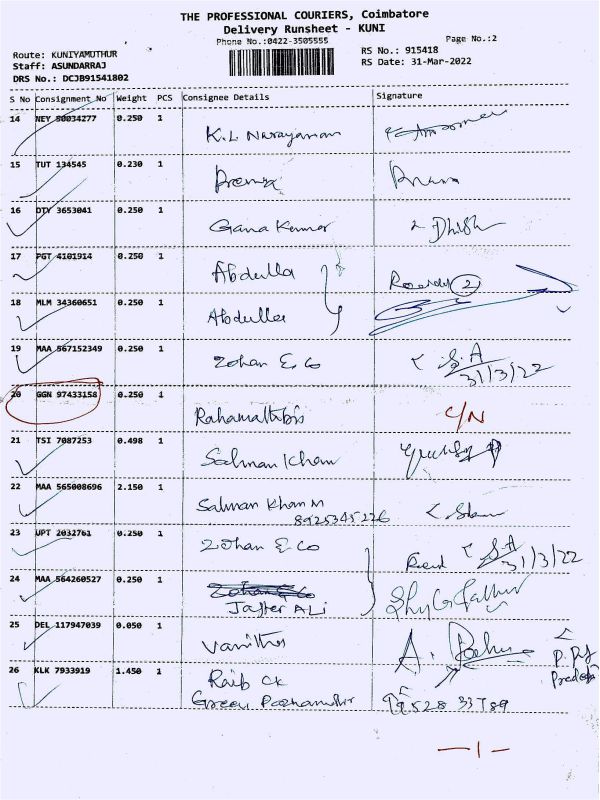 THE PROFESSIONAL COURIERS, Coimbatore
Delivery Runsheet - KUNI
Phone No.:0422-3505555
Page No.:2
Route: KUNIYAMUTHUR
Staff: ASUNDARRAJ
DRS No.: DCJB91541802
RS No.: 915418
RS Date: 31-Mar-2022
S No Consignment No Weight PCS Consignee Details Signature
14 NEY 50034277 0.250 1 K.L Narayanan
15 TUT 134545 0.230 1 Prema
16 DTY 3653041 0.250 1 Gana Kumar
17 PGT 4101914 0.250 1 Abdulla 2
18 MLM 34360651 0.250 1 Abdulla
19 MAA 567152349 0.250 1 Zohan E. Co S.A 31/3/22
20 GGN 97433158 0.250 1 C/N
21 TSI 7087253 0.498 1 Salman Khan
22 MAA 565008696 2.150 1 Salman Khan M
8925345226
23 UPT 2032761 0.250 1 Zohan E. Co S.A 31/3/22
24 MAA 564260527 0.250 1
Jaffer ALi
25 DEL 117947039 0.050 1 Vanitha A.
26 KLK 7933919 1.450 1 Raib CK
Green
- 1 -